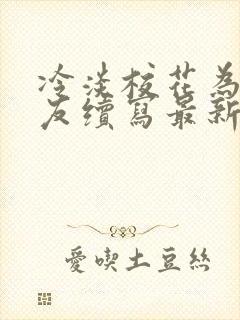 冷淡校花為
友續寫最新
愛喫土豆絲